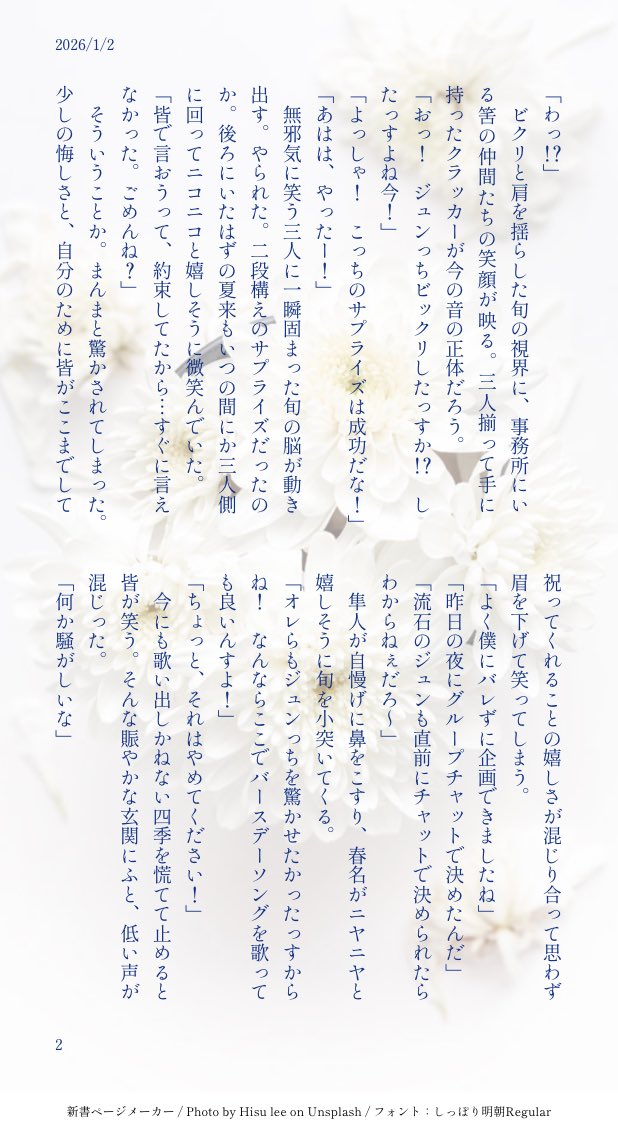 2026/1/2
「わっ!?」
　ビクリと肩を揺らした旬の視界に、事務所にい
る筈の仲間たちの笑顔が映る。三人揃って手に
持ったクラッカーが今の音の正体だろう。
「おっ！　ジュンっちビックリしたっすか!?　し
たっすよね今！」
「よっしゃ！　こっちのサプライズは成功だな！」
「あはは、やったー！」
　無邪気に笑う三人に一瞬固まった旬の脳が動き
出す。やられた。二段構えのサプライズだったの
か。後ろにいたはずの夏来もいつの間にか三人側
に回ってニコニコと嬉しそうに微笑んでいた。
「皆で言おうって、約束してたから…すぐに言え
なかった。ごめんね？」
　そういうことか。まんまと驚かされてしまった。
少しの悔しさと、自分のために皆がここまでして
祝ってくれることの嬉しさが混じり合って思わず
眉を下げて笑ってしまう。
「よく僕にバレずに企画できましたね」
「昨日の夜にグループチャットで決めたんだ」
「流石のジュンも直前にチャットで決められたら
わからねぇだろ〜」
　隼人が自慢げに鼻をこすり、春名がニヤニヤと
嬉しそうに旬を小突いてくる。
「オレらもジュンっちを驚かせたかったっすから
ね！　なんならここでバースデーソングを歌って
も良いんすよ！」
「ちょっと、それはやめてください！」
　今にも歌い出しかねない四季を慌てて止めると
皆が笑う。そんな賑やかな玄関にふと、低い声が
混じった。
「何か騒がしいな」
2
新書ページメーカー / Photo by Hisu lee on Unsplash / フォント：しっぽり明朝Regular